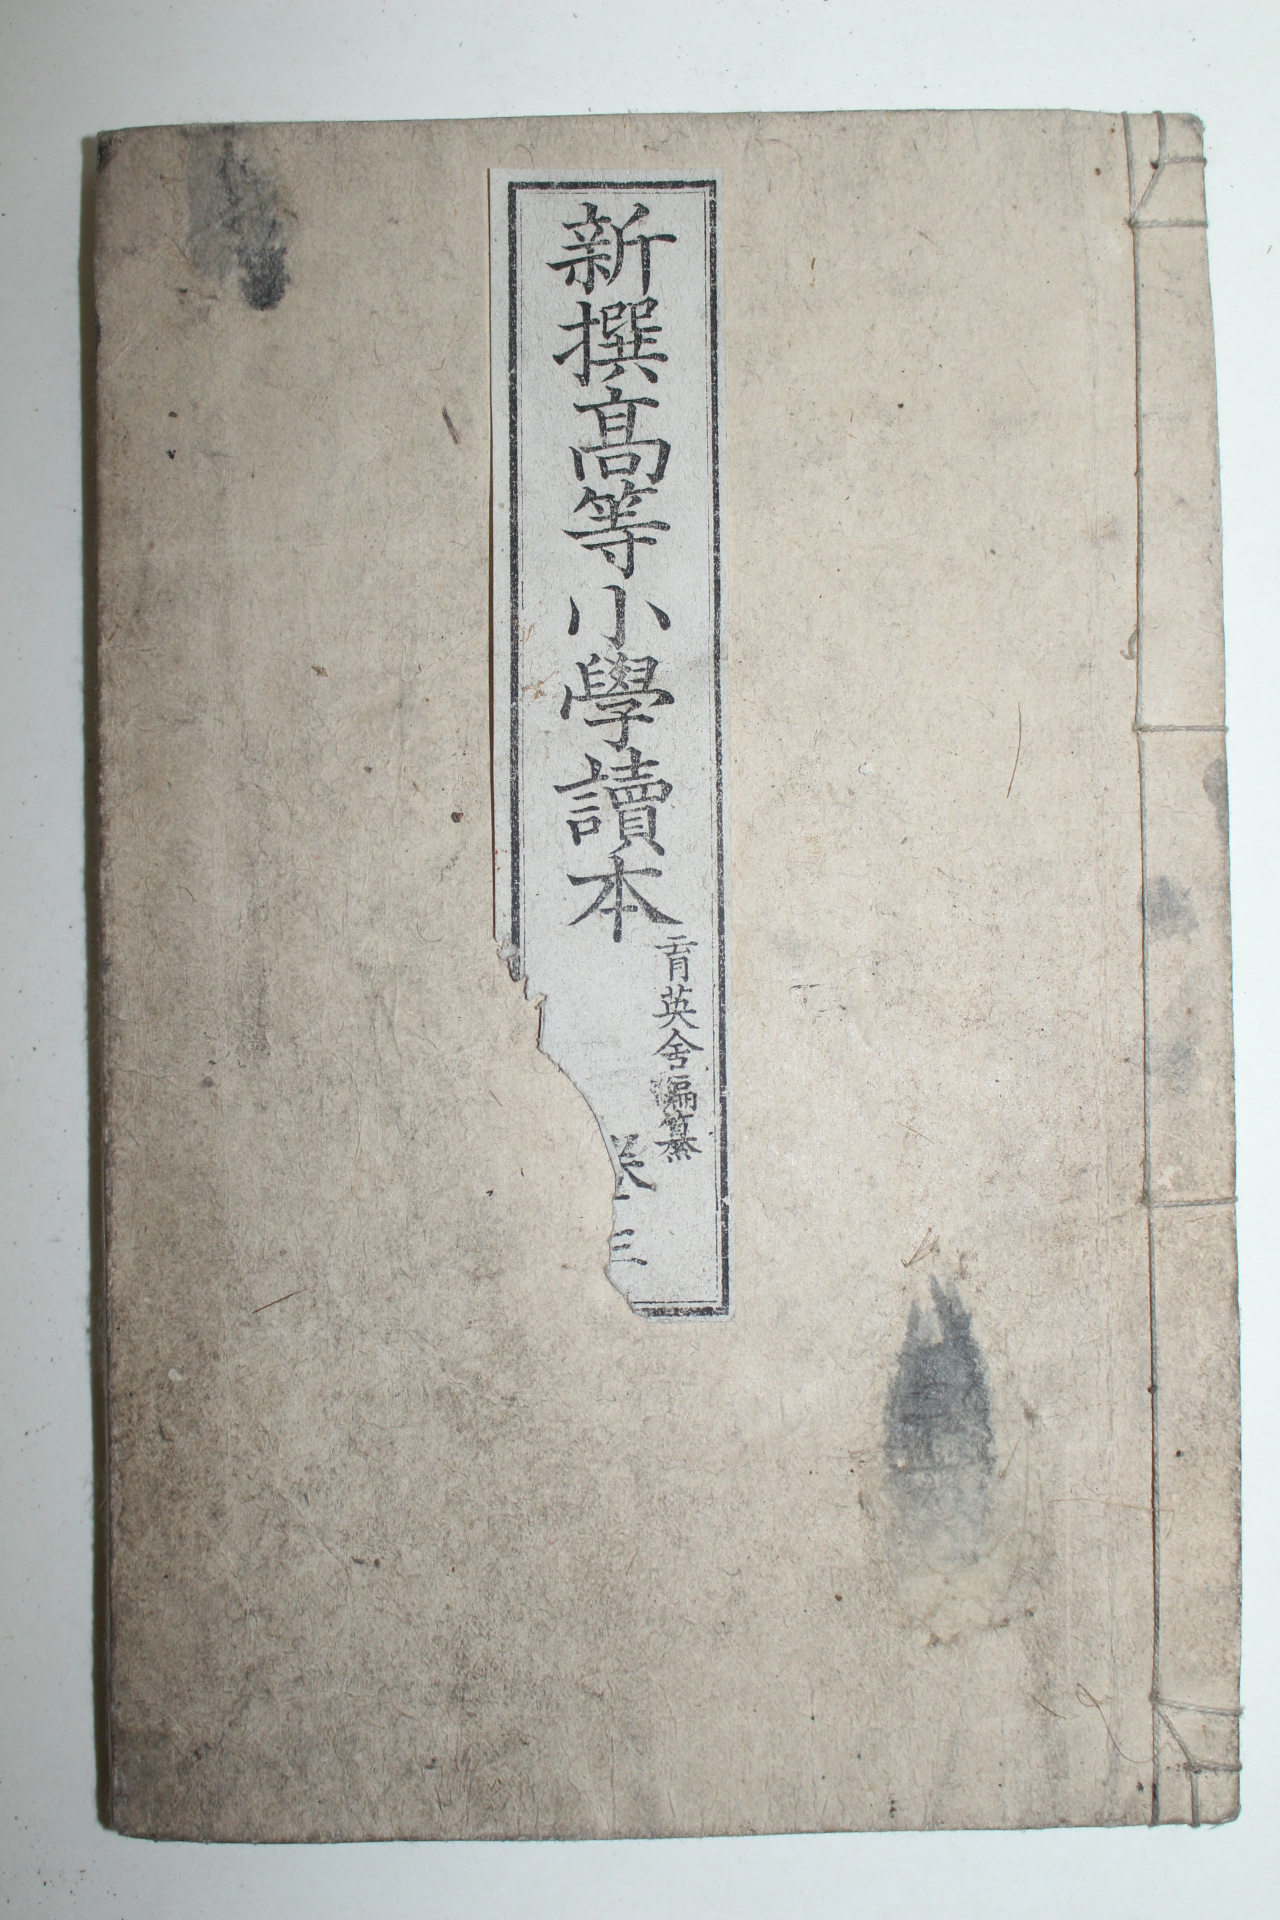 新撰高等小學讀本
育英舍編纂
卷三